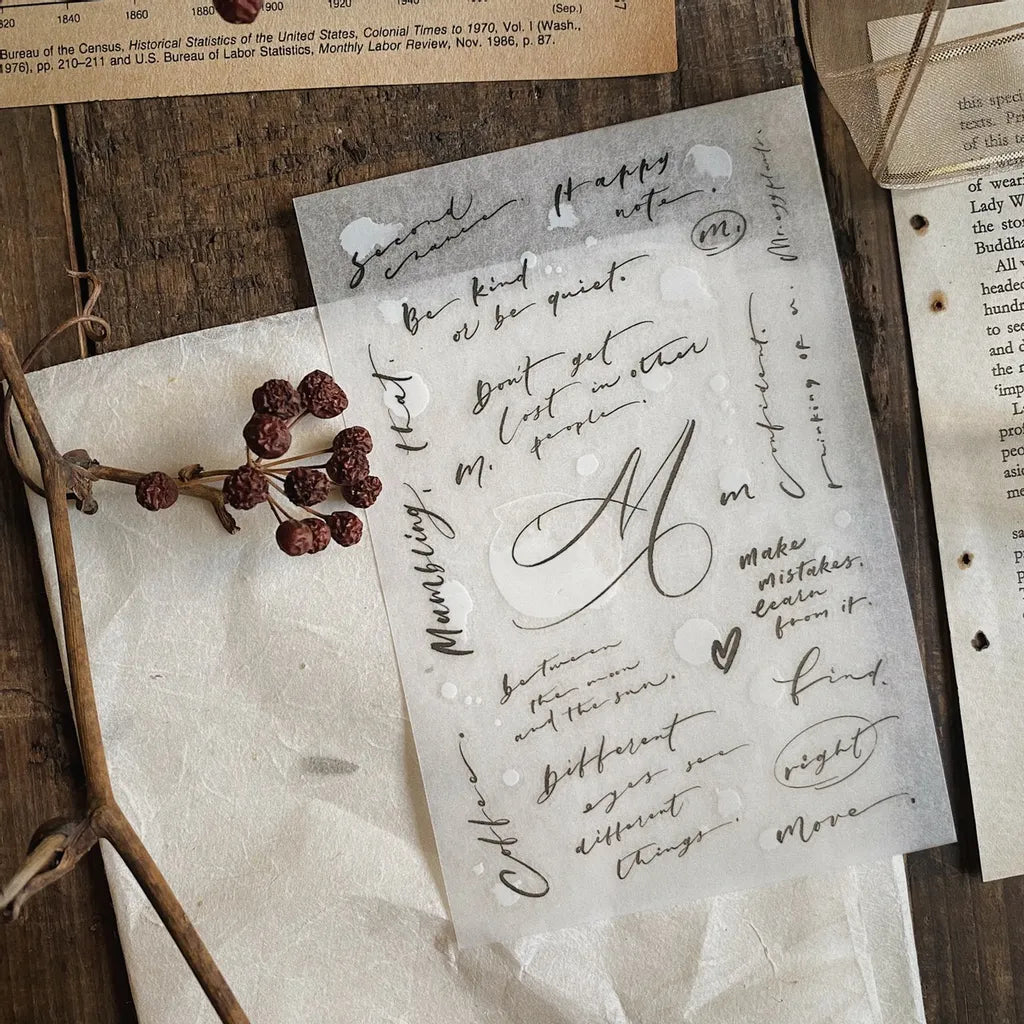 820 1840 1860 1880 1900 1920 1940
(Sep.)
Bureau of the Census, Historical Statistics of the United States, Colonial Times to 1970, Vol. I (Wash.,
1976), pp. 210–211 and U.S. Bureau of Labor Statistics, Monthly Labor Review, Nov. 1986, p. 87.
second
chance.
Happy
note.
m.
Be kind
or be quiet.
Don't get
lost in other
people.
M.
that.
Mumbling.
Coffee.
M
m
Confident.
thinking of u.
make
mistakes.
learn
from it.
between
the moon
and the sun.
find.
Different
eyes see
different
things.
right
move.
this speci
texts.
of this
of wear
Lady W
the sto
Buddha
All
headed
hundr
to see
and d
the
'imp
L
prof
peo
asid
mo
sa